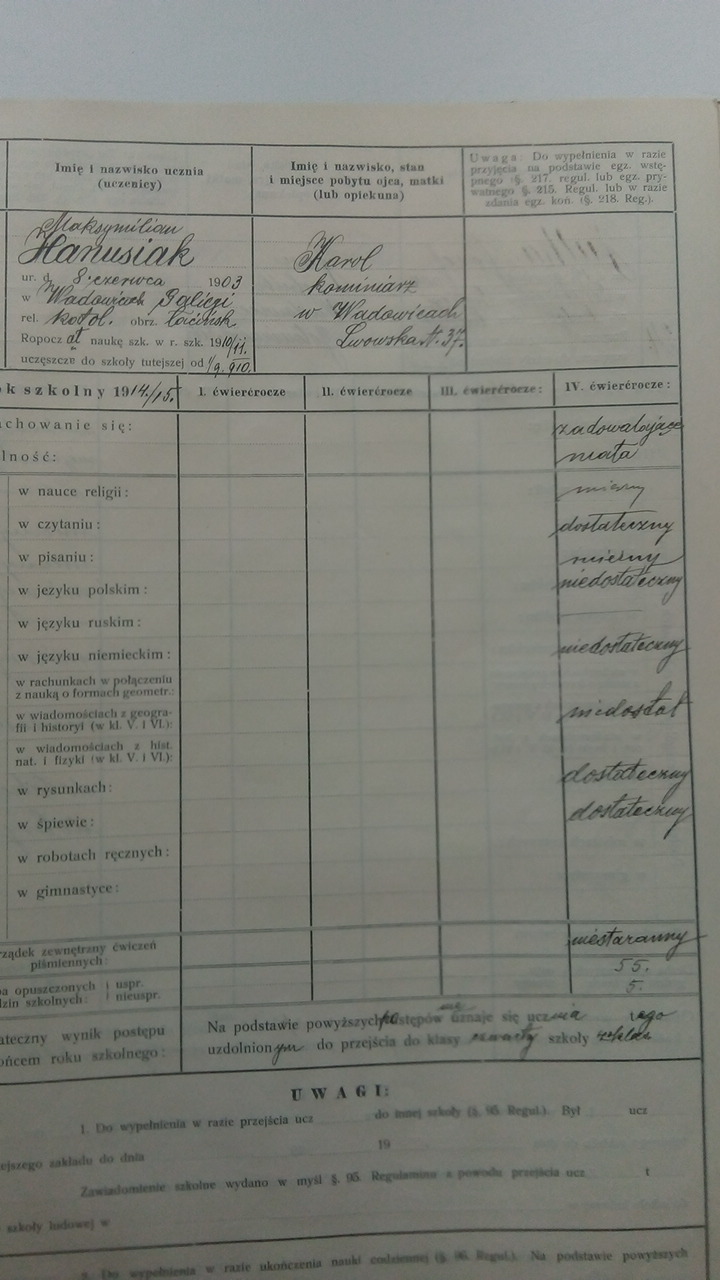 Imię i nazwisko ucznia
(uczenicy)
Imię i nazwisko, stan
i miejsce pobytu ojca, matki
(lub opiekuna)
Uwaga: Do wypełnienia w razie
przyjęcia na podstawie egz. wstę-
pnego (§. 217. regul. lub egz. pry-
watnego §. 215. Regul. lub w razie
zdania egz. koń. (§. 218. Reg.).
Maksymilian
Hanusiak
ur. d. 8. czerwca 1903
w Wadowicach Galicyi
rel. katol. obrz. łacińsk
Rozpoczął naukę szk. w r. szk. 1910/11.
uczęszcza do szkoły tutejszej od 1/9. 910.
Karol
kominiarz
w Wadowicach
Lwowska N. 37.
ok szkolny 1914/15. I. ćwierćrocze II. ćwierćrocze III. ćwierćrocze: IV. ćwierćrocze:
achowanie się: zadowalające
lność: mała
w nauce religii: mierny
w czytaniu: dostateczny
w pisaniu: mierny
w jezyku polskim: niedostateczny
w języku ruskim:
w języku niemieckim: niedostateczny
w rachunkach w połączeniu
z nauką o formach geometr.: niedostat
w wiadomościach z geogra-
fii i historyi (w kl. V. i VI.):
w wiadomościach z hist.
nat. i fizyki (w kl. V. i VI.):
w rysunkach: dostateczny
w śpiewie: dostateczny
w robotach ręcznych:
w gimnastyce:
rządek zewnętrzny ćwiczeń
piśmiennych: niestaranny
ba opuszczonych uspr. 55.
dzin szkolnych: nieuspr. 5.
ateczny wynik postępu
ońcem roku szkolnego:
Na podstawie powyższych postępów nie uznaje się ucznia
uzdolnionym do przejścia do klasy czwartej szkoły
UWAGI:
1. Do wypełnienia w razie przejścia ucz do innej szkoły (§. 95. Regul.). Był ucz
ejszego zakładu do dnia 19
Zawiadomienie szkolne wydano w myśl §. 95. Regulaminu z powodu przejścia ucz t
szkoły ludowej w
2. Do wypełnienia w razie ukończenia nauki codziennej (§. 96. Regul.). Na podstawie powyższych